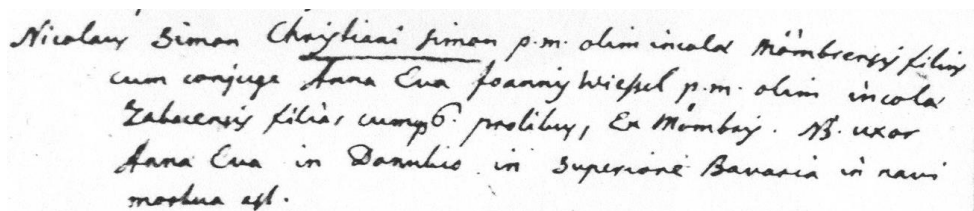 Nicolaus Simon Christiani Simon p.m. olim incolae Mömbrensis filius
cum conjuge Anna Eva Joannis Wiessel p.m. olim incolae
filia, cum 6 prolibus, Ex Mömbris. NB. uxor
Anna Eva in Danubio in Superiore Bavaria in navi
mortua est.